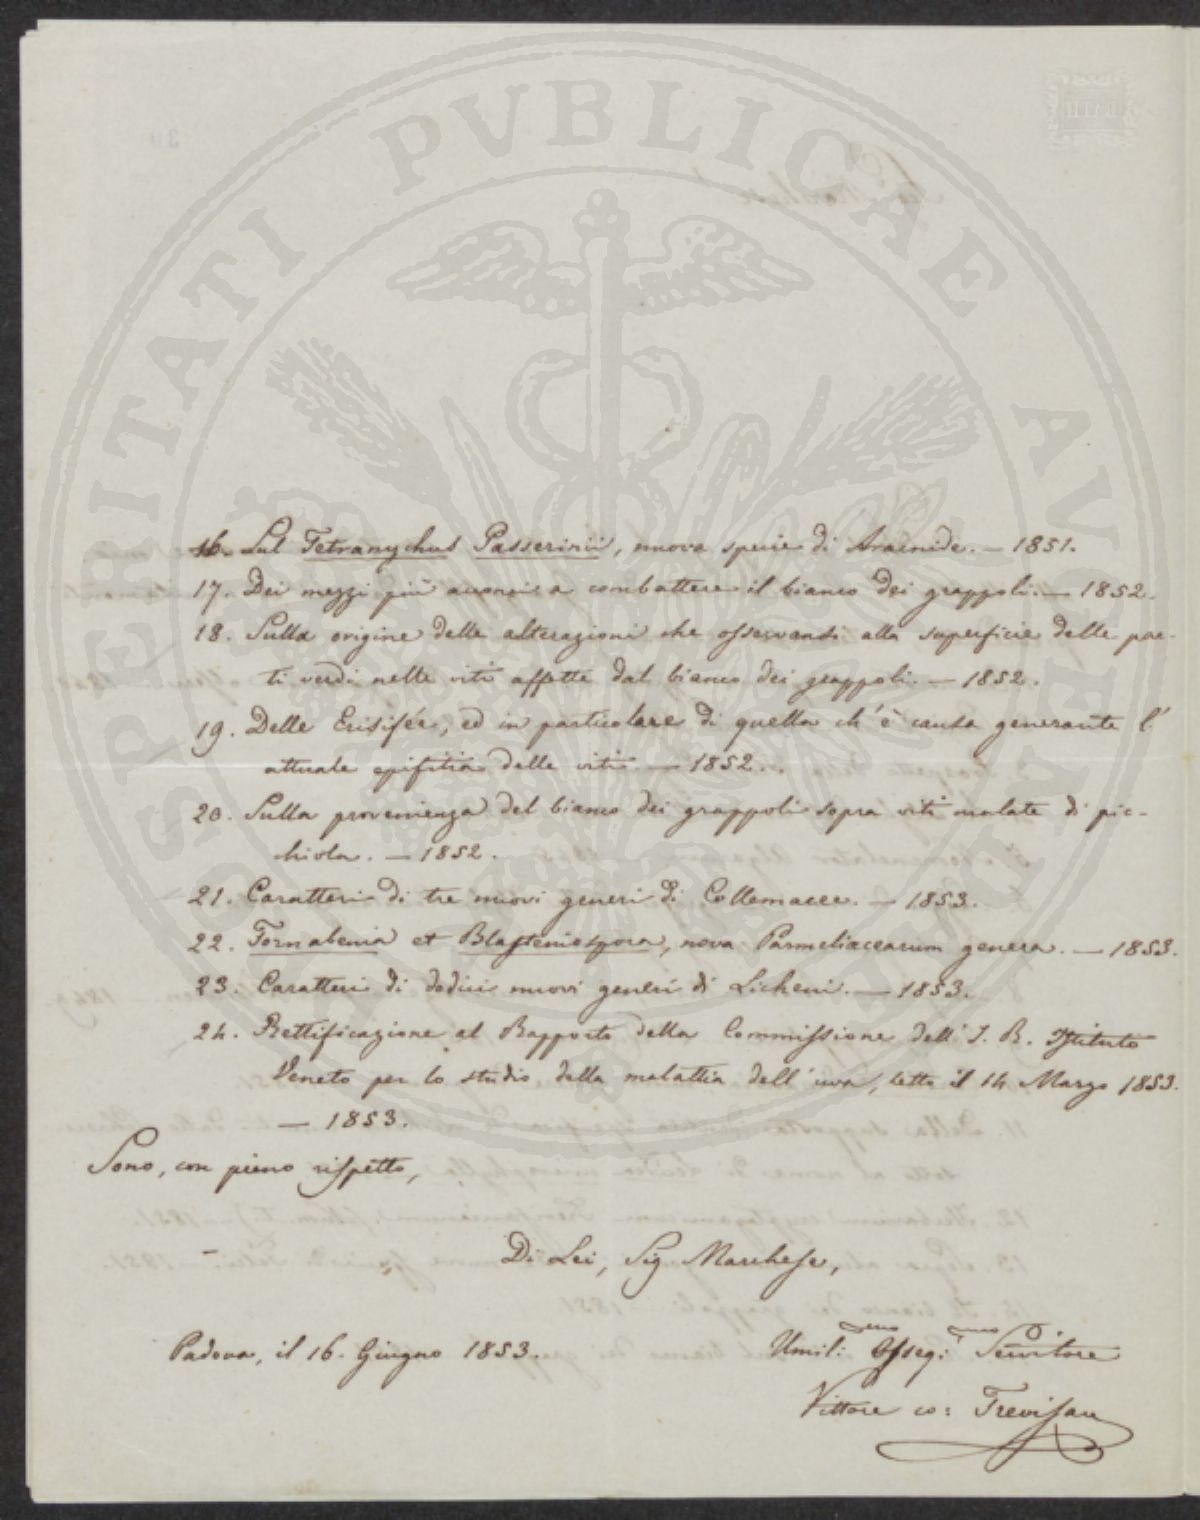 PROSPERITATI PVBLICAE AVGENDAE
16. Sul Tetranychus Passerinii, nuova specie di Aracnide. — 1851.
17. Dei mezzi più acconci a combattere il bianco dei grappoli. — 1852.
18. Sulla origine delle alterazioni che osservansi alla superficie delle par-
ti verdi nelle viti affette dal bianco dei grappoli. — 1852.
19. Delle Erisifée, ed in particolare di quella ch'è causa generante l'
attuale epifitia delle viti. — 1852.
20. Sulla provenienza del bianco dei grappoli sopra viti malate di pic-
chiola. — 1852.
21. Caratteri di tre nuovi generi di Collemacee. — 1853.
22. Tornabenia et Blasteniospora, nova Parmeliacearum genera. — 1853.
23. Caratteri di dodici nuovi generi di Licheni. — 1853.
24. Rettificazione al Rapporto della Commissione dell' I. R. Istituto
Veneto per lo studio della malattia dell'uva, letto il 14 Marzo 1853.
— 1853.
Sono, con pieno rispetto,
Di Lei, Sig Marchese,
Padova, il 16. Giugno 1853.
Umil: Osseq: Servitore
Vittore co: Trevisan